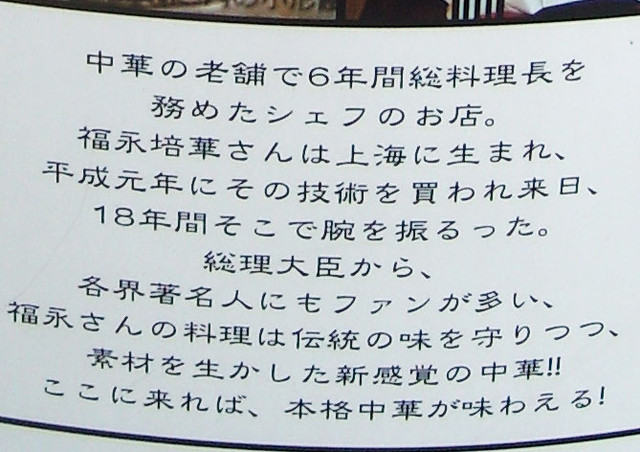 中華の老舗で6年間総料理長を
務めたシェフのお店。
福永培華さんは上海に生まれ、
平成元年にその技術を買われ来日、
18年間そこで腕を振るった。
総理大臣から、
各界著名人にもファンが多い、
福永さんの料理は伝統の味を守りつつ、
素材を生かした新感覚の中華!!
ここに来れば、本格中華が味わえる!